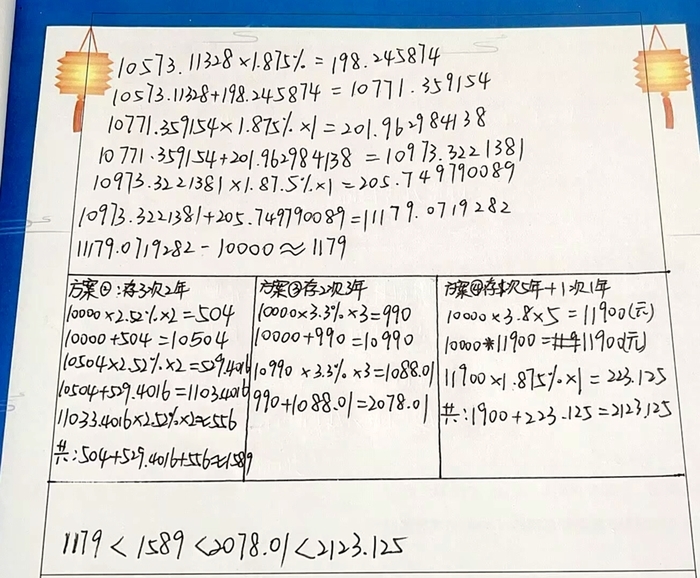 10573.11328×1.875%=198.245874
10573.11328+198.245874=10771.359154
10771.359154×1.875%×1=201.962984138
10771.359154+201.962984138=10973.3221381
10973.3221381×1.87.5%×1=205.749790089
10973.3221381+205.749790089=11179.0719282
11179.0719282-10000≈1179
方案②:存3次2年
10000×2.52%×2=504
10000+504=10504
10504×2.52%×2=529.4016
10504+529.4016=11033.4016
11033.4016×2.52%×2≈556
共:504+529.4016+556≈1589
方案③存2次3年
10000×3.3%×3=990
10000+990=10990
10990×3.3%×3=1088.01
990+1088.01=2078.01
方案④存1次5年+1次1年
10000×3.8×5=11900(元)
10000*11900=11900(元)
11900×1.875%×1=223.125
共:1900+223.125=2123.125
1179<1589<2078.01<2123.125